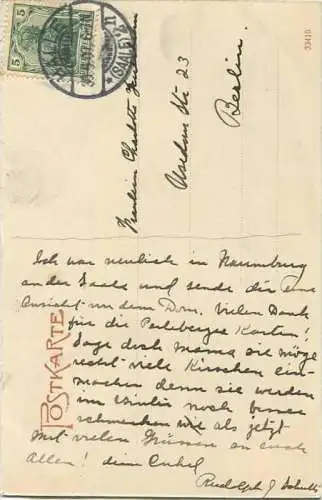 5
5
HALLE
(SAALE) 2
n
33415
Fräulein Charlotte
Usedom Str 23
Berlin.
POSTKARTE
Ich war neulich in Naumburg
an der Saale und sende dir eine
Ansicht von dem Dom. Vielen Dank
für die Perleberger Karten!
Sage doch Mama sie möge
recht viele Kirschen ein-
machen denn sie werden
im Winter noch besser
schmecken wie als jetzt
Mit vielen Grüssen an euch
Allen! dein Onkel
Rudolph J Schultz